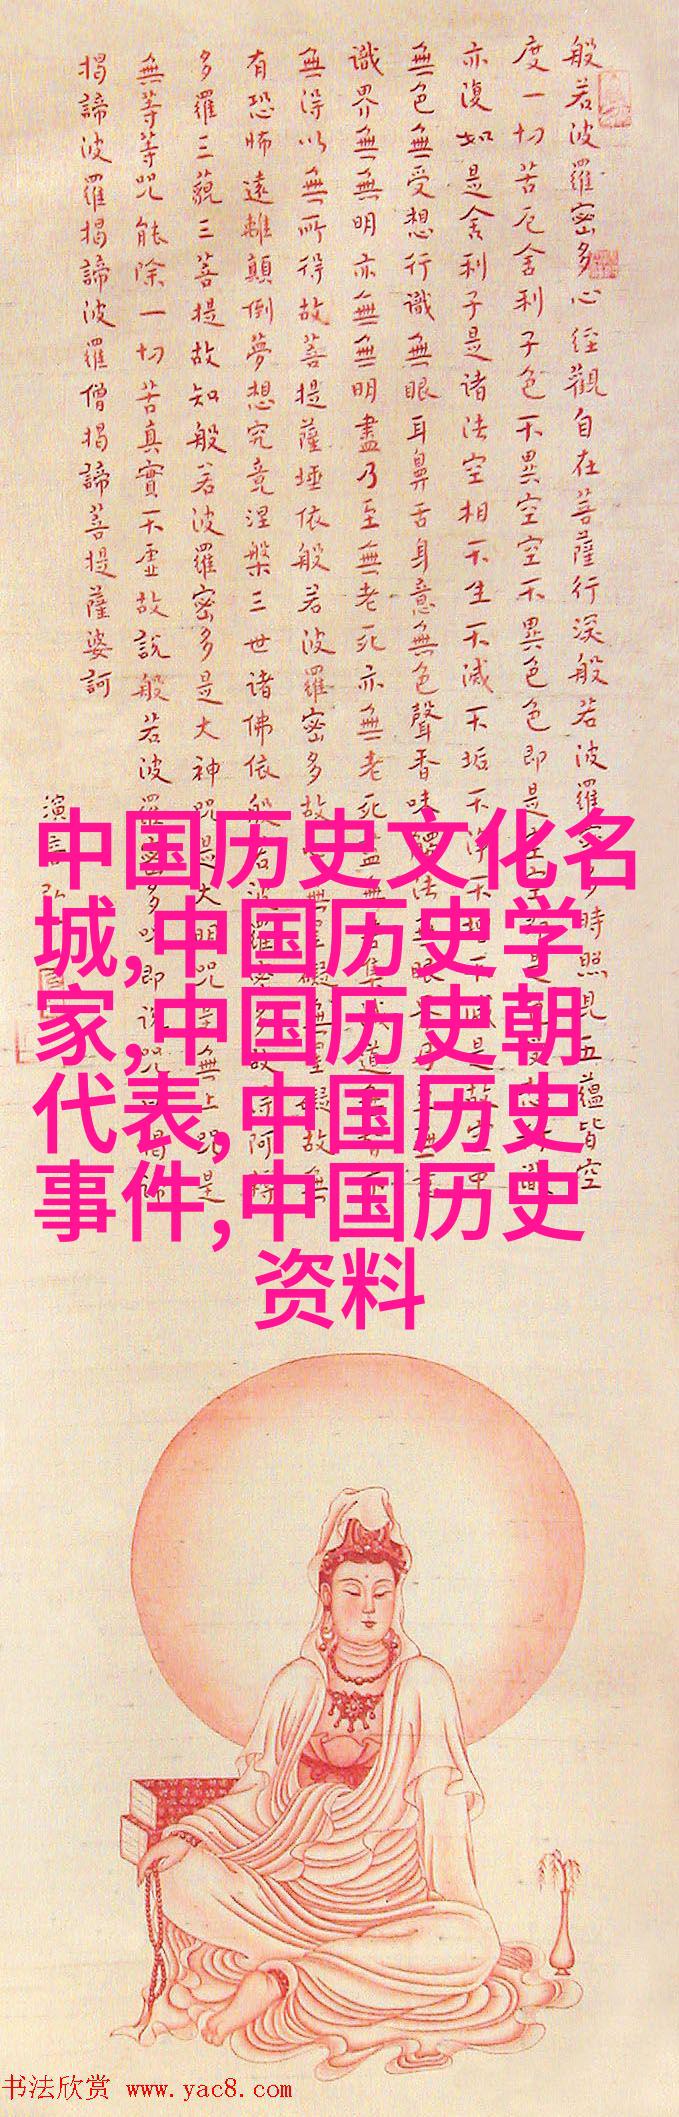 般若波羅密多心经觀自在菩薩行深般若波羅密多時照見五蘊皆空
度一切苦厄舍利子色不異空空不異色色即是
亦復如是舍利子是诸法空相不生不滅不垢不净不是故空中
無色無受想行識無眼耳鼻舌身意無色聲香味法無眼
識界無無明亦無無明盡乃至無老死亦無老死盡無集道無亦
無得以無所得故菩提薩埵依般若波羅密多故無罣礙無罣礙故無
有恐怖遠離顛倒夢想究竟涅槃三世诸佛依般若波羅密多故得阿耨
多羅三藐三菩提故知般若波羅密多是大神咒是大明咒是無上咒是
無等等咒能除一切苦真實不虚故説般若波羅密多咒即说咒揭諦
揭諦波羅揭諦波羅僧揭諦菩提薩婆訶
演音
中国历史文化名
城,中国历史学
家,中国历史朝
代表,中国历史
事件,中国历史
资料
书法欣赏 www.yac8.com